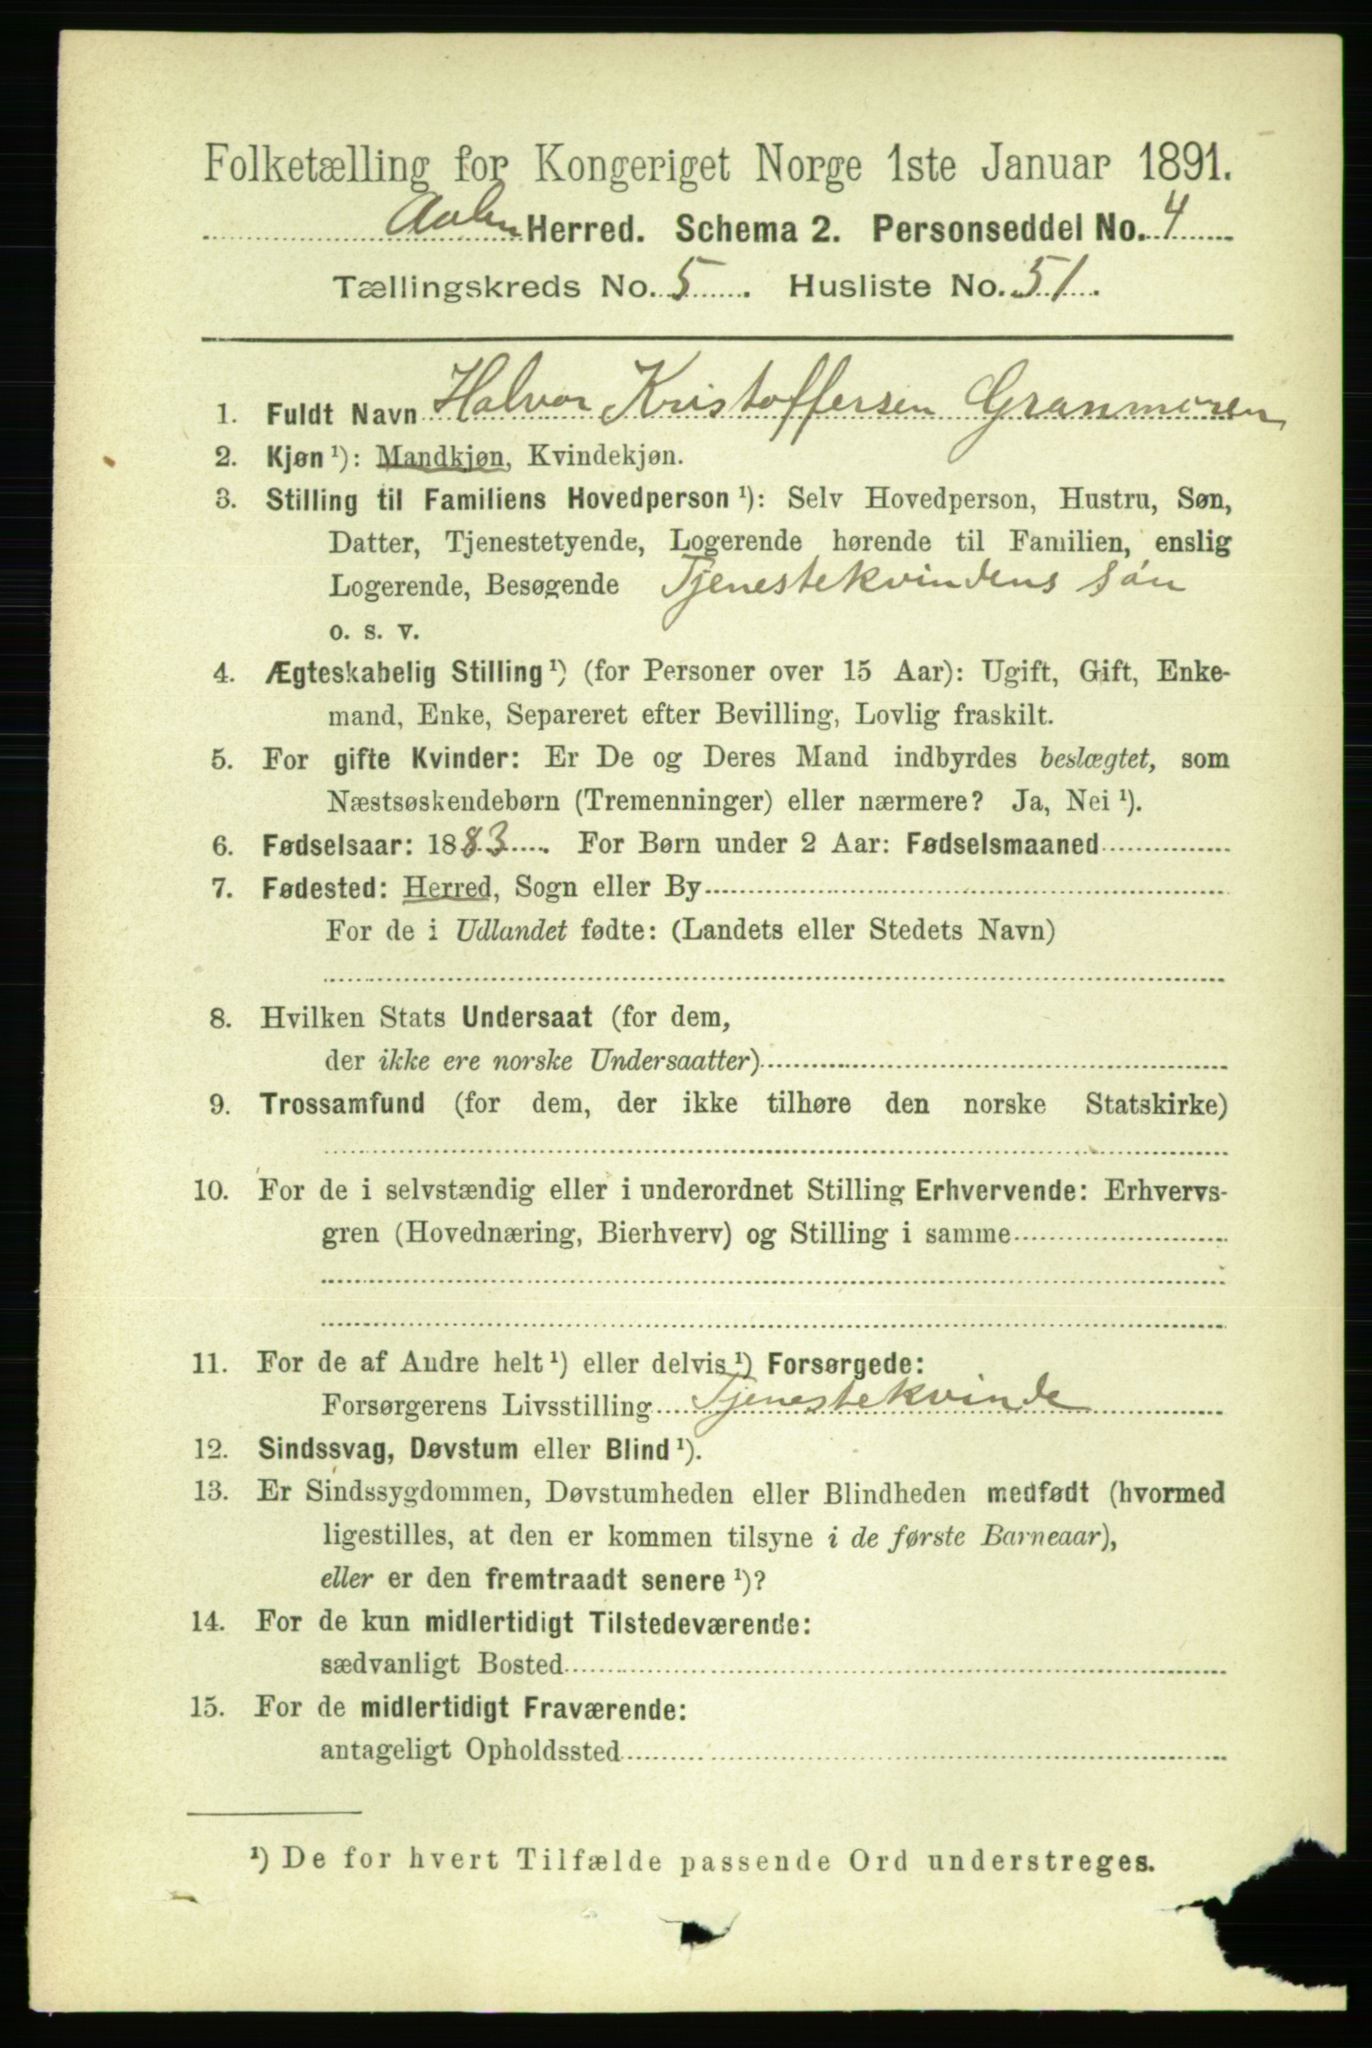 Folketælling for Kongeriget Norge 1ste Januar 1891.
Aalen Herred. Schema 2. Personseddel No. 4
Tællingskreds No. 5. Husliste No. 51.
1. Fuldt Navn Halvor Kristoffersen Granmoren
2. Kjøn ¹): Mandkjøn, Kvindekjøn.
3. Stilling til Familiens Hovedperson ¹): Selv Hovedperson, Hustru, Søn,
Datter, Tjenestetyende, Logerende hørende til Familien, enslig
Logerende, Besøgende Tjenestekvindens søn
o. s. v.
4. Ægteskabelig Stilling ¹) (for Personer over 15 Aar): Ugift, Gift, Enke-
mand, Enke, Separeret efter Bevilling, Lovlig fraskilt.
5. For gifte Kvinder: Er De og Deres Mand indbyrdes beslægtet, som
Næstsøskendebørn (Tremenninger) eller nærmere? Ja, Nei ¹).
6. Fødselsaar: 1883. For Børn under 2 Aar: Fødselsmaaned
7. Fødested: Herred, Sogn eller By
For de i Udlandet fødte: (Landets eller Stedets Navn)
8. Hvilken Stats Undersaat (for dem,
der ikke ere norske Undersaatter)
9. Trossamfund (for dem, der ikke tilhøre den norske Statskirke)
10. For de i selvstændig eller i underordnet Stilling Erhvervende: Erhvervs-
gren (Hovednæring, Bierhverv) og Stilling i samme
11. For de af Andre helt ¹) eller delvis ¹) Forsørgede:
Forsørgerens Livsstilling Tjenestekvinde
12. Sindssvag, Døvstum eller Blind ¹).
13. Er Sindssygdommen, Døvstumheden eller Blindheden medfødt (hvormed
ligestilles, at den er kommen tilsyne i de første Barneaar),
eller er den fremtraadt senere ¹)?
14. For de kun midlertidigt Tilstedeværende:
sædvanligt Bosted
15. For de midlertidigt Fraværende:
antageligt Opholdssted
¹) De for hvert Tilfælde passende Ord understreges.